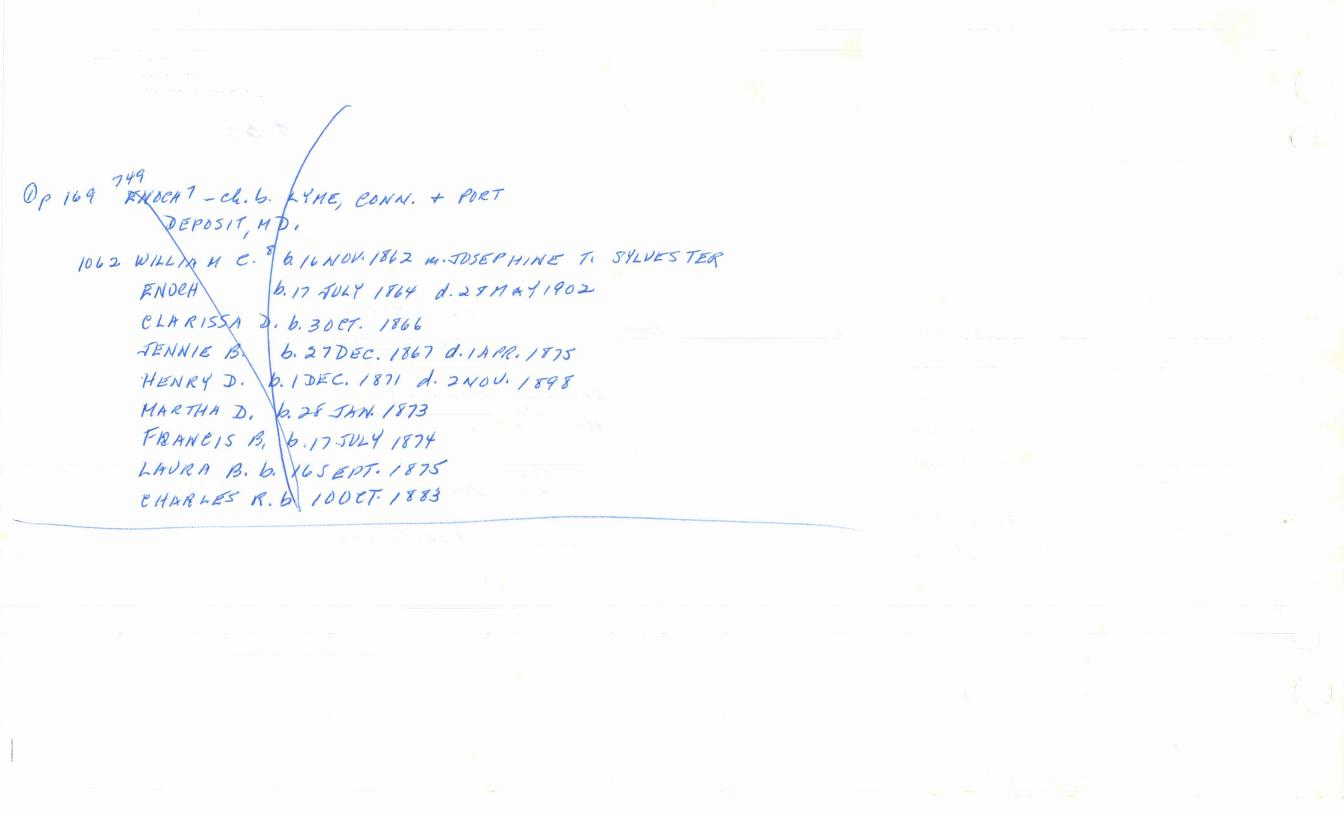 ① p 169 749 ENOCH 7 - ch. b. LYME, CONN. + PORT
DEPOSIT, MD.
1062 WILLIAM C. 8 b. 16 NOV. 1862 m. JOSEPHINE T. SYLVESTER
ENOCH b. 17 JULY 1864 d. 28 MAY 1902
CLARISSA D. b. 3 OCT. 1866
JENNIE B. b. 27 DEC. 1867 d. 1 APR. 1875
HENRY D. b. 1 DEC. 1871 d. 2 NOV. 1898
MARTHA D. b. 28 JAN. 1873
FRANCIS B. b. 17 JULY 1874
LAURA B. b. 16 SEPT. 1875
CHARLES R. b. 10 OCT. 1883